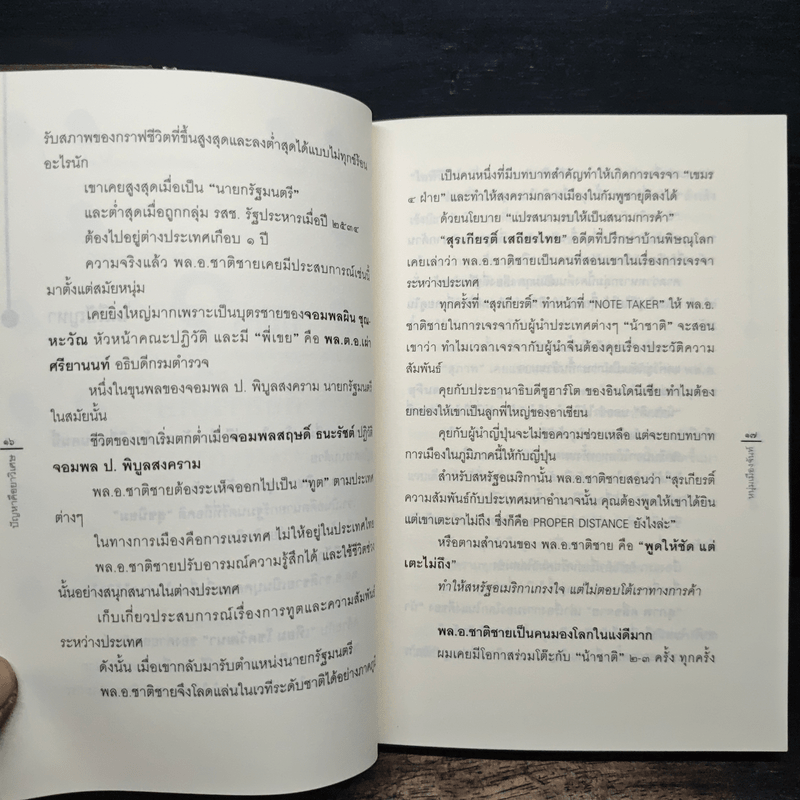 รับสภาพของกราฟชีวิตที่ขึ้นสูงสุดและลงต่ำสุดได้แบบไม่ทุกข์ร้อน
อะไรนัก
เขาเคยสูงสุดเมื่อเป็น “นายกรัฐมนตรี”
และต่ำสุดเมื่อถูกกลุ่ม รสช. รัฐประหารเมื่อปี ๒๕๓๔
ต้องไปอยู่ต่างประเทศเกือบ ๑ ปี
ความจริงแล้ว พล.อ.ชาติชายเคยมีประสบการณ์เช่นนี้
มาตั้งแต่สมัยหนุ่ม
เคยยิ่งใหญ่มากเพราะเป็นบุตรชายของจอมพลผิน ชุณ-
หะวัณ หัวหน้าคณะปฏิวัติ และมี “พี่เขย” คือ พล.ต.อ.เผ่า
ศรียานนท์ อธิบดีกรมตำรวจ
หนึ่งในขุนพลของจอมพล ป. พิบูลสงคราม นายกรัฐมนตรี
ในสมัยนั้น
ชีวิตของเขาเริ่มตกต่ำเมื่อจอมพลสฤษดิ์ ธนะรัชต์ ปฏิวัติ
จอมพล ป. พิบูลสงคราม
พล.อ.ชาติชายต้องระเห็จออกไปเป็น “ทูต” ตามประเทศ
ต่างๆ
ในทางการเมืองคือการเนรเทศ ไม่ให้อยู่ในประเทศไทย
พล.อ.ชาติชายปรับอารมณ์ความรู้สึกได้ และใช้ชีวิตช่วง
นั้นอย่างสนุกสนานในต่างประเทศ
เก็บเกี่ยวประสบการณ์เรื่องการทูตและความสัมพันธ์
ระหว่างประเทศ
ดังนั้น เมื่อเขากลับมารับตำแหน่งนายกรัฐมนตรี
พล.อ.ชาติชายจึงโลดแล่นในเวทีระดับชาติได้อย่างภาคภูมิ
๑๖
ปัญหาคือยาวิเศษ
เป็นคนหนึ่งที่มีบทบาทสำคัญทำให้เกิดการเจรจา “เขมร
๔ ฝ่าย” และทำให้สงครามกลางเมืองในกัมพูชายุติลงได้
ด้วยนโยบาย “แปรสนามรบให้เป็นสนามการค้า”
“สุรเกียรติ์ เสถียรไทย” อดีตที่ปรึกษาบ้านพิษณุโลก
เคยเล่าว่า พล.อ.ชาติชายเป็นคนที่สอนเขาในเรื่องการเจรจา
ระหว่างประเทศ
ทุกครั้งที่ “สุรเกียรติ์” ทำหน้าที่ “NOTE TAKER” ให้ พล.อ.
ชาติชายในการเจรจากับผู้นำประเทศต่างๆ “น้าชาติ” จะสอน
เขาว่า ทำไมเวลาเจรจากับผู้นำจีนต้องคุยเรื่องประวัติความ
สัมพันธ์
คุยกับประธานาธิบดีซูฮาร์โต ของอินโดนีเซีย ทำไมต้อง
ยกย่องให้เขาเป็นลูกพี่ใหญ่ของอาเซียน
คุยกับผู้นำญี่ปุ่นจะไม่ขอความช่วยเหลือ แต่จะยกบทบาท
การเมืองในภูมิภาคนี้ให้กับญี่ปุ่น
สำหรับสหรัฐอเมริกานั้น พล.อ.ชาติชายสอนว่า “สุรเกียรติ์
ความสัมพันธ์กับประเทศมหาอำนาจนั้น คุณต้องพูดให้เขาได้ยิน
แต่เขาเตะเราไม่ถึง ซึ่งก็คือ PROPER DISTANCE ยังไงล่ะ”
หรือตามสำนวนของ พล.อ.ชาติชาย คือ “พูดให้ชัด แต่
เตะไม่ถึง”
ทำให้สหรัฐอเมริกาเกรงใจ แต่ไม่ตอบโต้เราทางการค้า
พล.อ.ชาติชายเป็นคนมองโลกในแง่ดีมาก
ผมเคยมีโอกาสร่วมโต๊ะกับ “น้าชาติ” ๒-๓ ครั้ง ทุกครั้ง
๑๗
หนุ่มเมืองจันท์